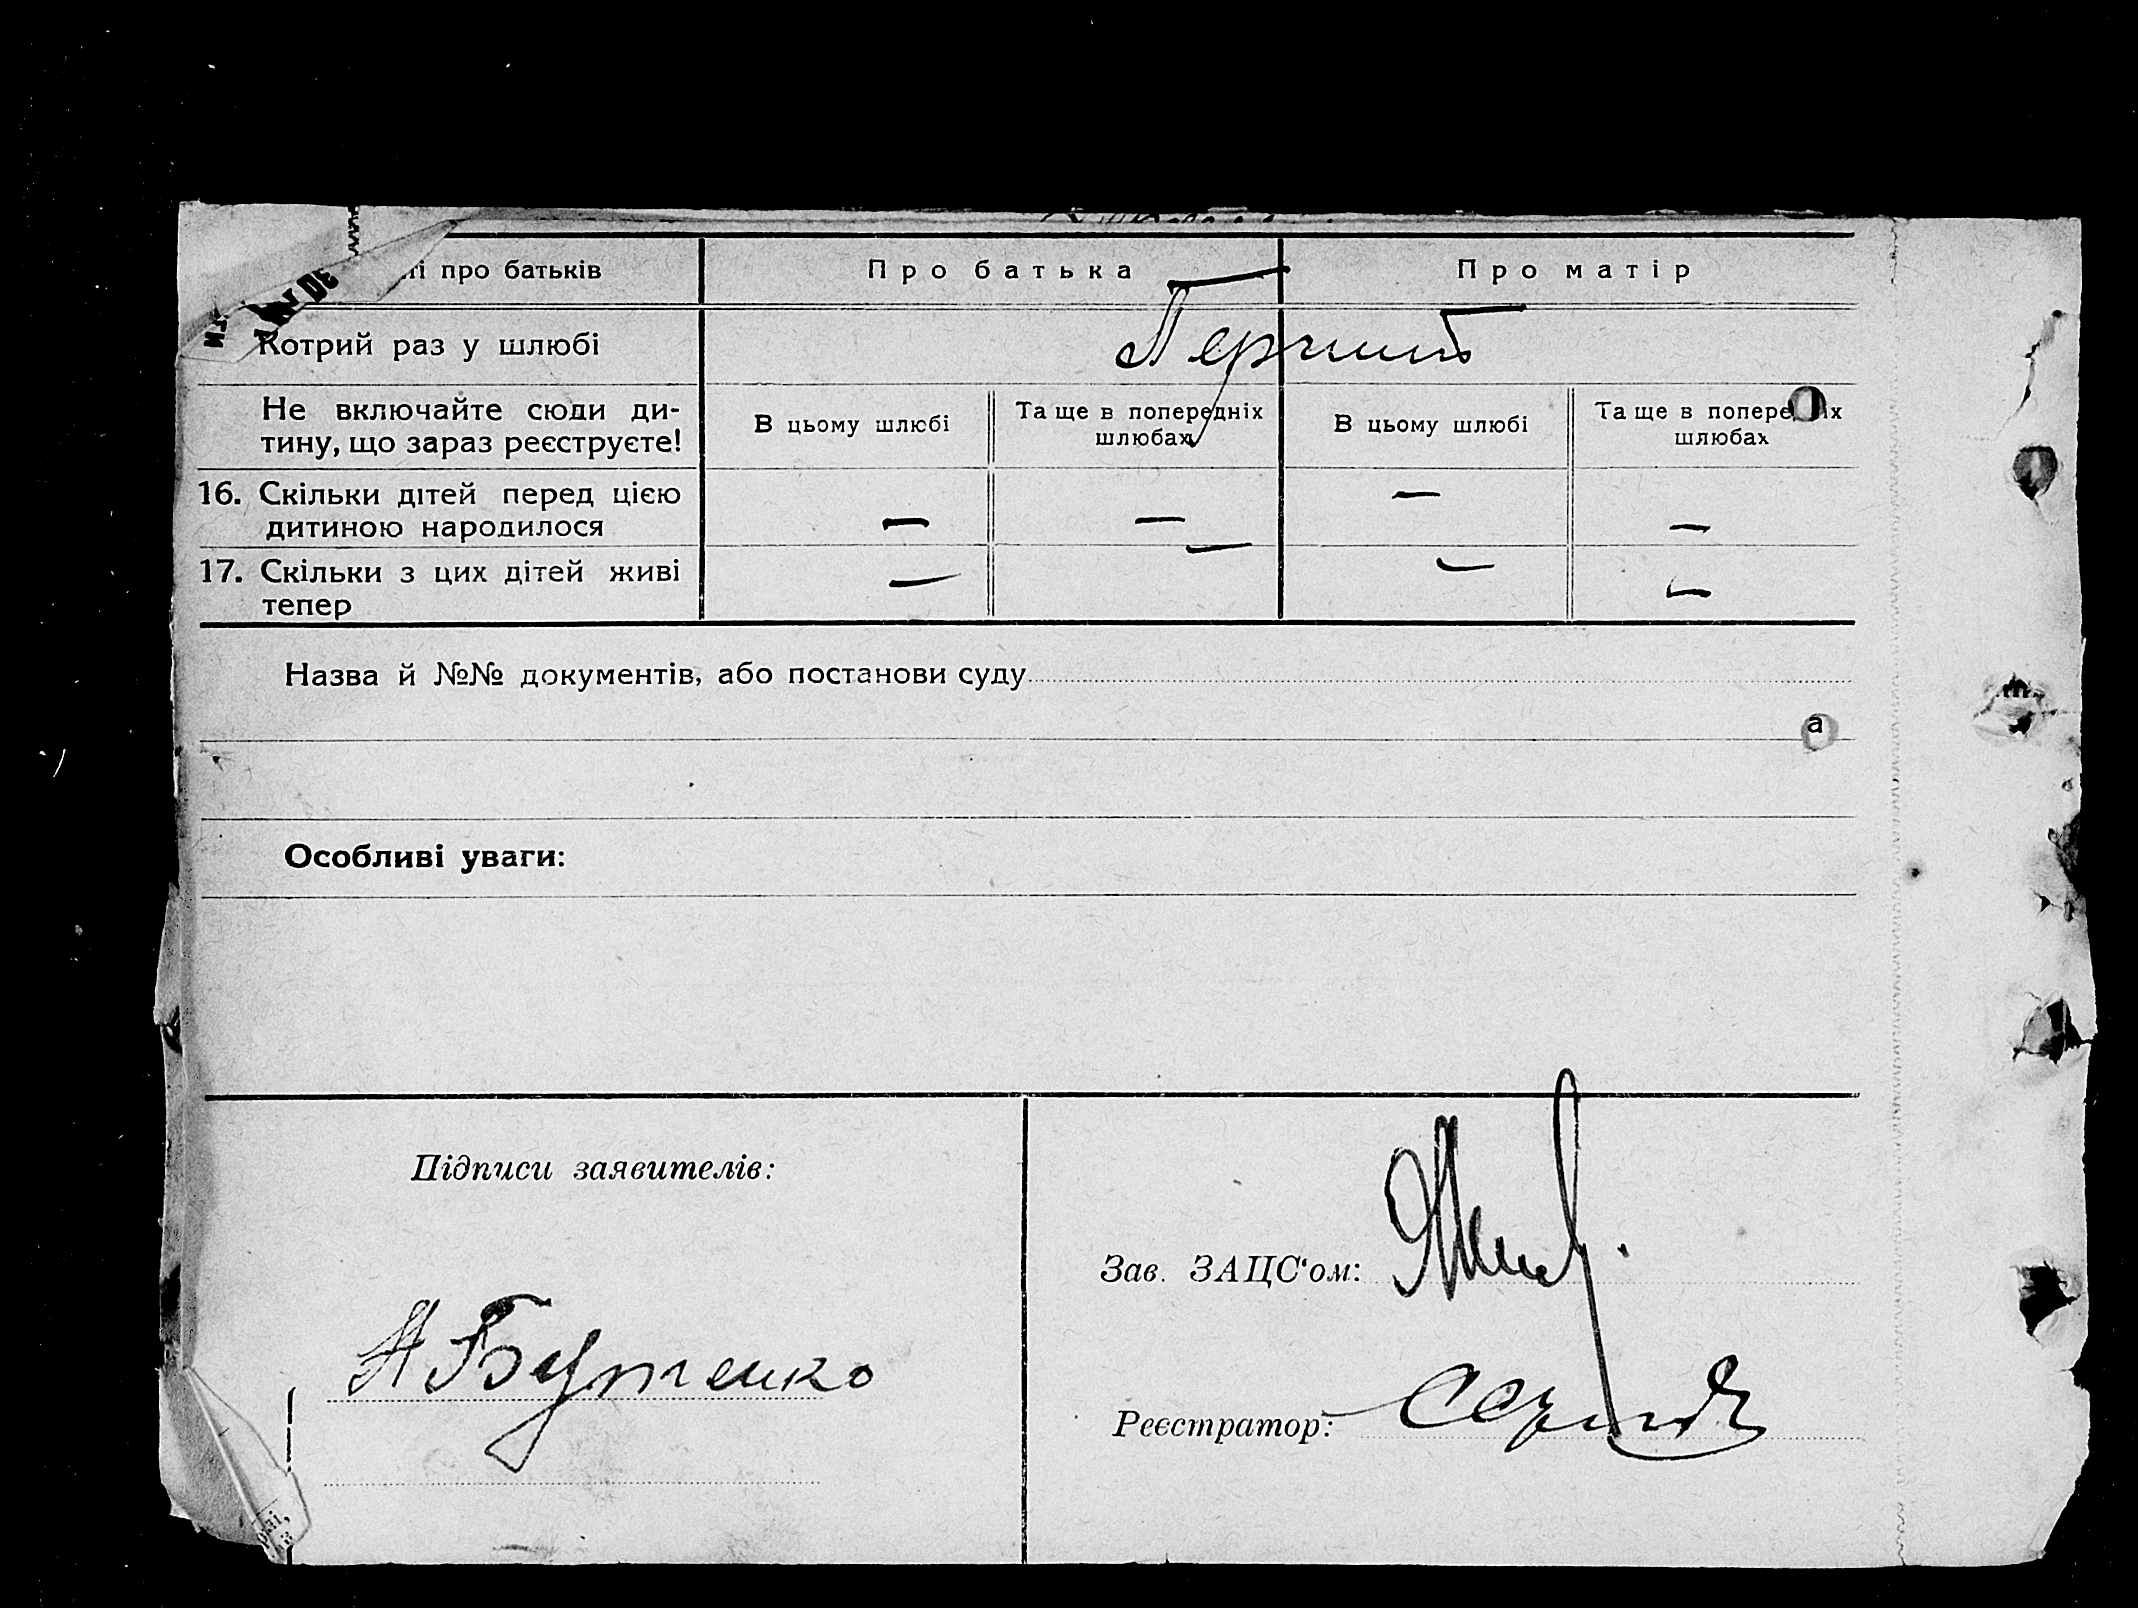 про батьків Про батька Про матір
Котрий раз у шлюбі
Не включайте сюди ди-
тину, що зараз реєструєте!
В цьому шлюбі
Та ще в попередніх
шлюбах
В цьому шлюбі
Та ще в
шлюбах
16. Скільки дітей перед цією
дитиною народилося
— — — —
17. Скільки з цих дітей живі
тепер
— — — —
Назва й №№ документів, або постанови суду
а
Особливі уваги:
Підписи заявителів:
А Бутенко
Зав. ЗАЦС‘ом:
Реєстратор: